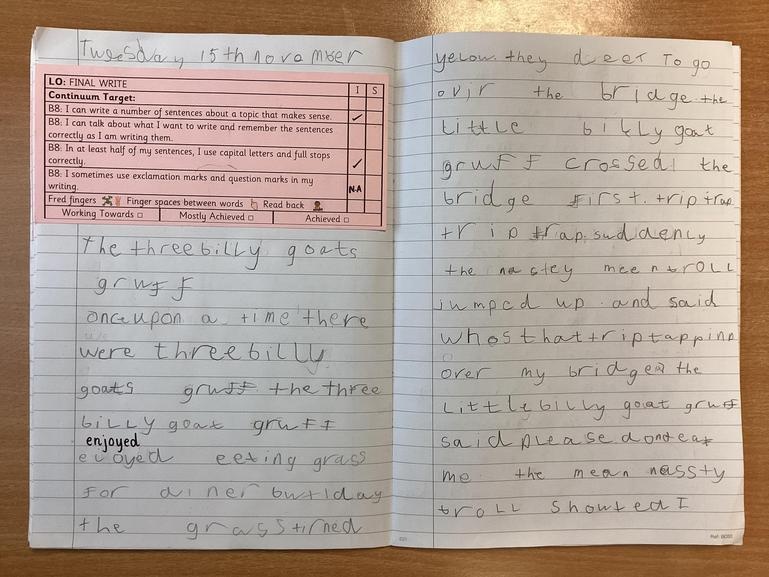 Tuesday 15th november
LO: FINAL WRITE
I S
Continuum Target:
B8: I can write a number of sentences about a topic that makes sense.
B8: I can talk about what I want to write and remember the sentences
correctly as I am writing them.
B8: In at least half of my sentences, I use capital letters and full stops
correctly.
B8: I sometimes use exclamation marks and question marks in my
writing.
N.A
Fred fingers Finger spaces between words Read back
Working Towards □ Mostly Achieved □ Achieved □
the three billy goats
gruff
once upon a time there
were three billy
goats gruff the three
billy goat gruff
enjoyed
eeting grass
for diner but 1 day
the grass tirned
yelow. they deet To go
ovir the bridge. the
little billy goat
gruff crossed the
bridge first. trip trap
trip trap. suddency
the nastey meen troll
jumped up. and said
whos that trip tapping
over my bridge the
Little billy goat gruff
said please dont eat
me. the mean nassty
troll Showted I
Ref: BO55